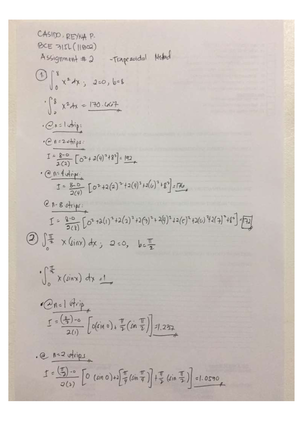 CASIDO, REYNA P.
BCE
Assignment # 2 - Trapezoidal Method
① ∫₀⁸ x² dx ; a=0, b=8
• ∫₀⁸ x² dx = 170.667
• @ n = 1 strip:
• @ n = 2 strips:
I = 8-0/2(2) [0² + 2(4)² + 8²] = 192
@ n = 4 strips:
I = 8-0/2(4) [0² + 2(2)² + 2(4)² + 2(6)² + 8²] = 176
@ n = 8 strips:
I = 8-0/2(8) [0² + 2(1)² + 2(2)² + 2(3)² + 2(4)² + 2(5)² + 2(6)² + 2(7)² + 8²] = 172
② ∫₀^(π/2) x (sin x) dx ; a=0, b = π/2
• ∫₀^(π/2) x (sin x) dx = 1
• @ n = 1 strip:
I = (π/2)-0/2(1) [0(sin 0) + π/2 (sin π/2)] =
• @ n = 2 strips:
I = (π/2)-0/2(2) [0 (sin 0) + 2[π/4 (sin π/4)] + π/2 (sin π/2)] = 1.0530